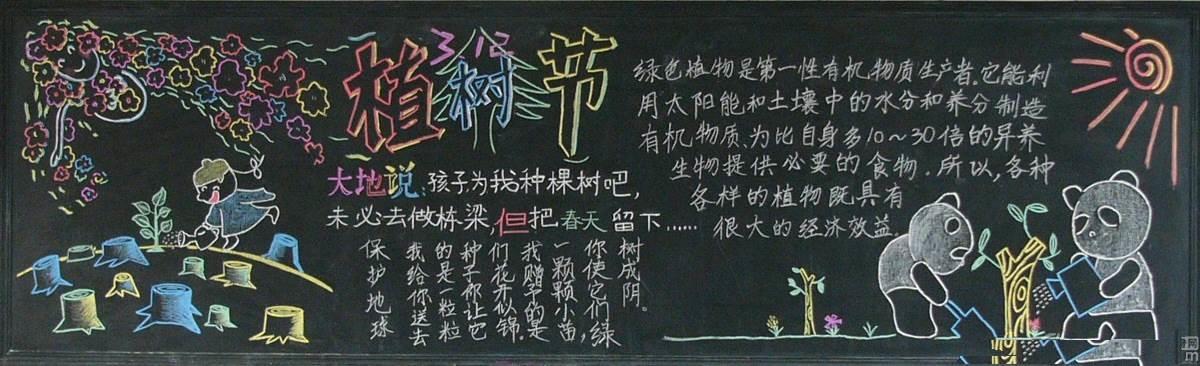 3.12
植树节
大地说:孩子为我种棵树吧,
未必去做栋梁,但把春天留下……
保护地球
我给你送去
的是一粒粒
种子你让它
们花开似锦。
我赠予的是
一颗颗小苗,
你使它们绿
树成阴。
绿色植物是第一性有机物质生产者。它能利
用太阳能和土壤中的水分和养分制造
有机物质、为比自身多10～30倍的异养
生物提供必要的食物.所以,各种
各样的植物既具有
很大的经济效益.